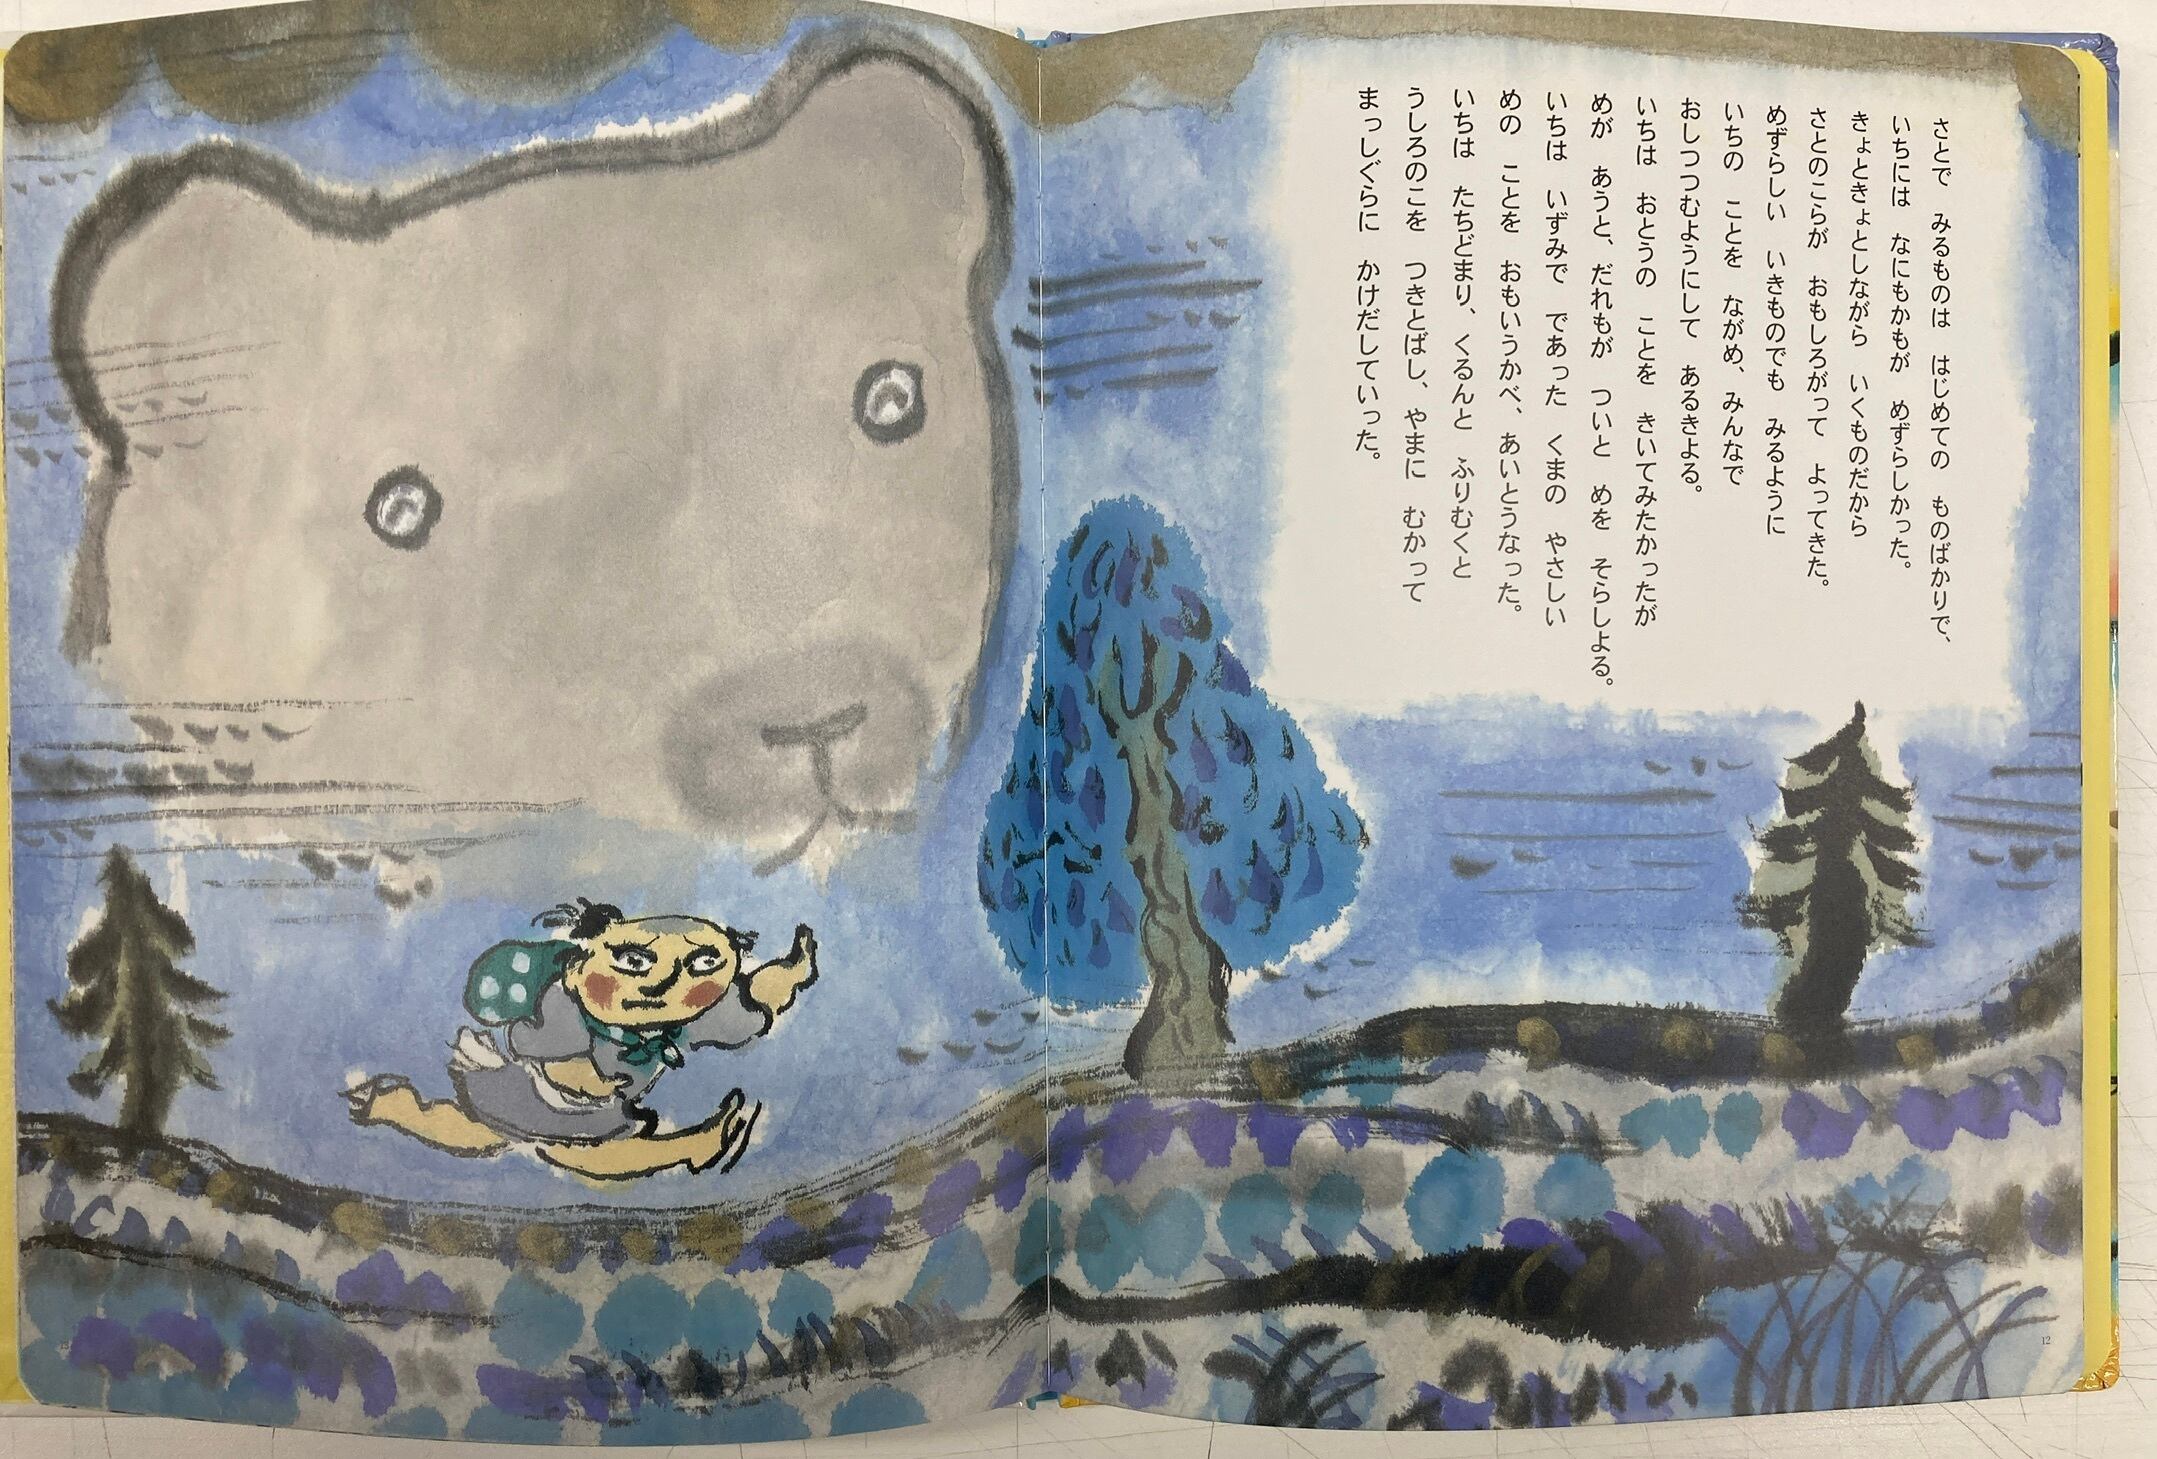 さとで　みるものは　はじめての　ものばかりで、
いちには　なにもかもが　めずらしかった。
きょときょとしながら　いくものだから
さとのこらが　おもしろがって　よってきた。
めずらしい　いきものでも　みるように
いちの　ことを　ながめ、みんなで
おしつつむようにして　あるきよる。
いちは　おとうの　ことを　きいてみたかったが
めが　あうと、だれもが　ついと　めを　そらしよる。
いちは　いずみで　であった　くまの　やさしい
めの　ことを　おもいうかべ、あいとうなった。
いちは　たちどまり、くるんと　ふりむくと
うしろのこを　つきとばし、やまに　むかって
まっしぐらに　かけだしていった。
12
13